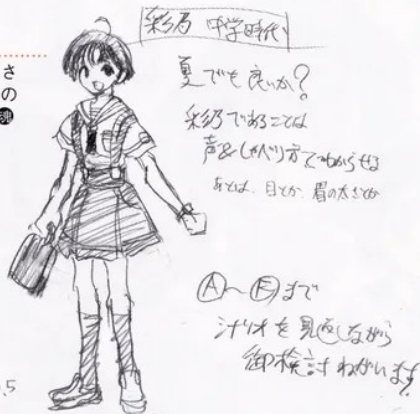 彩乃 中学時代
夏でも良いか?
彩乃であることは
声&しゃべり方でわからせる
あとは、目とか、眉の太さとか
Ⓐ〜Ⓔまで
シナリオを見返しながら
御検討ねがいます!
さ
の
.5